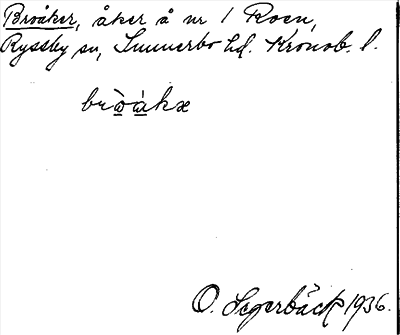 Broåker, åker å nr 1 Roen,
Ryssby sn, Sunnerbo hd. Kronob. l.
brò̲à̲kæ
O. Segerbäck 1936.